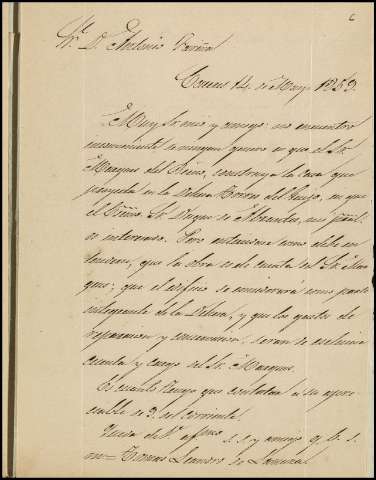 6
Sr. D. Antonio
14 de Mayo 1859.
Muy Sr. mio y amigo: no encuentro
inconveniente de ningun genero en que el Sr.
Marques del construya la casa que
proyecta en la Dehesa del en que
el Sr. Duque de Abrantes, mi
es interesado. Pero entiendase como debe en
tenderse, que la obra es de cuenta del Sr. Mar
ques; que el edificio se considerará como parte
integrante de la Dehesa, y que los gastos de
reparacion y conservacion, seran de esclusiva
cuenta y cargo del Sr. Marques.
Es cuanto tengo que contestar a su apre
ciable de 9 del corriente.
Queda de V. affmo. s. s. y amigo q. b. s.
m = Tomas Leandro de